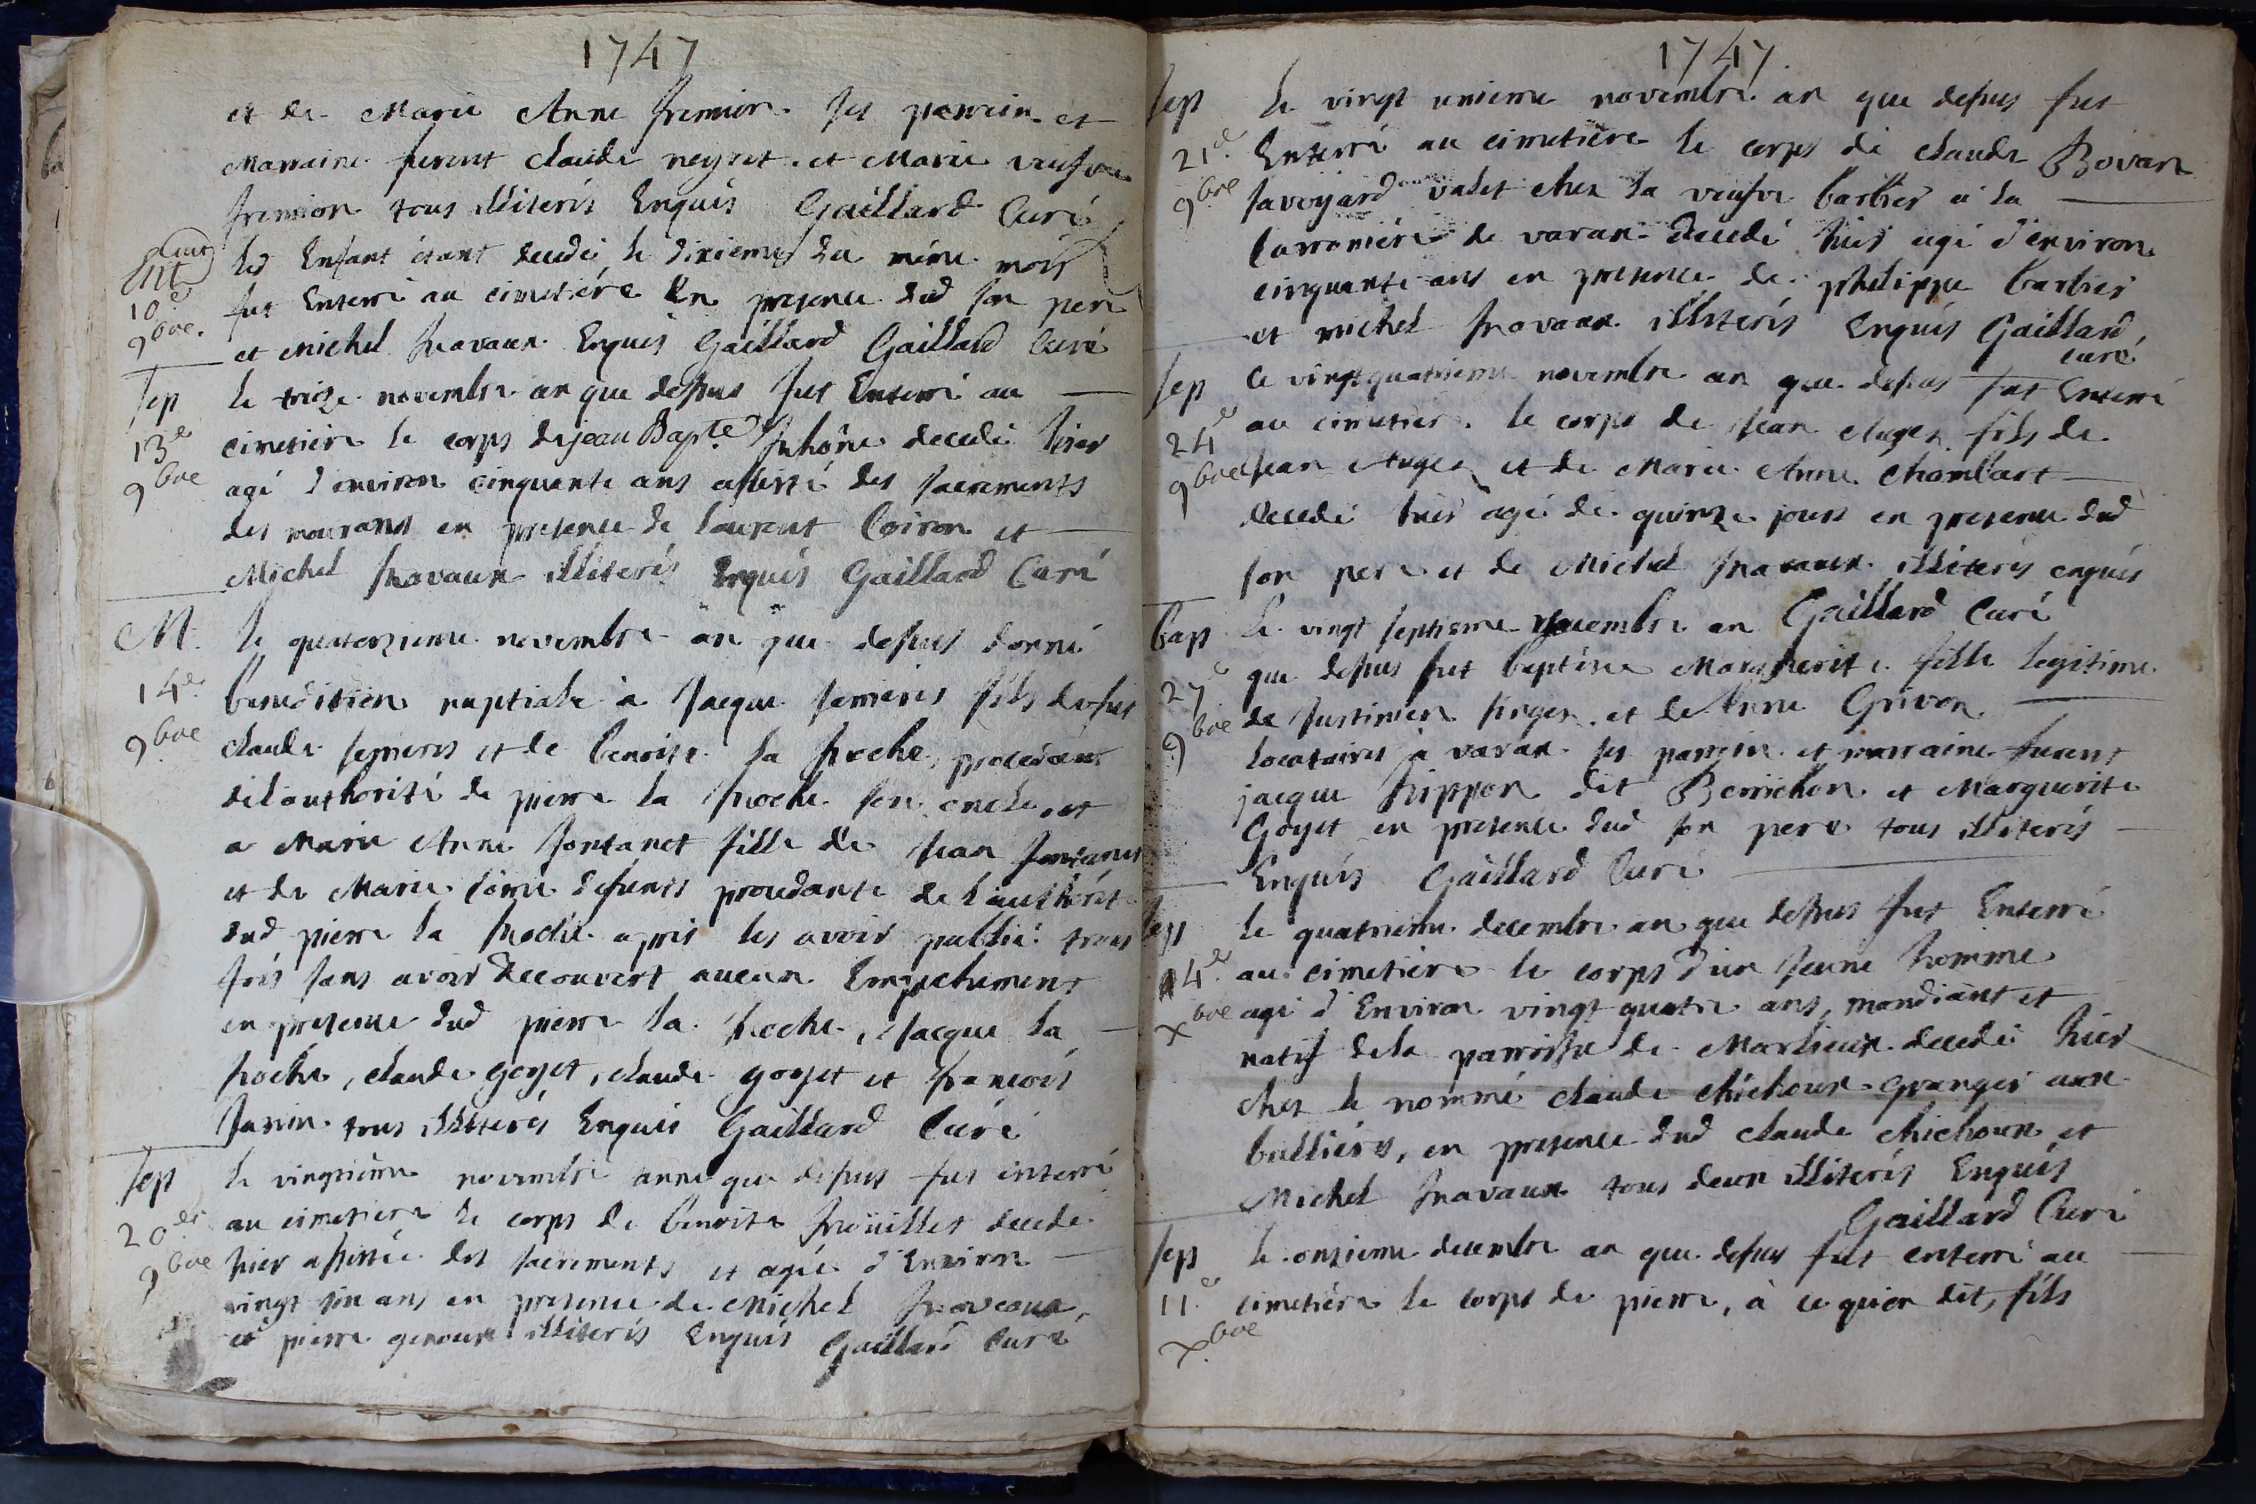 1747
et de Marie Anne fremion. ses parrein et
Marraine furent claude neyret. et Marie veufve
fremion tous illiterés Enquis Gaillard Curé
led Enfant étant decedé le dixieme du même mois
10e 9bre. fut Enterré au cimetiére En presence dud son pere
et Michel travaux Enquis Gaillard Gaillard Curé
sep le treize novembre an que dessus fut Enterré au
13e cimetiere le corps de jean Bapte decedé hier
9bre agé d'environ cinquante ans assisté des sacrements
des mourans en presence de laurent Coiron et
Michel travaux illiterés Enquis Gaillard Curé
M. le quatorzieme novembre an que dessus donné
14e benediction nuptiale à Jacque fils de fut
9bre claude et de benoite la Roche, procedant
de l'authorité de pierre la Roche son oncle, et
a Marie Anne fontanet fille de Jean fontanet
et de Marie defunts procedante de l'authorité
dud pierre la Roche apris les avoir publié trois
fois sans avoir decouvert aucun Empechement
en presence dud pierre la Roche, Jacque la
Roche, claude goyet, claude goyet et francois
Janin tous illiterés Enquis Gaillard Curé
sep le vingtième novembre anne que dessus fut interré
20e au cimetiere le corps de benoite decede
9bre hier assistée des sacrements et agée d'Environ
vingt six ans en presence de Michel travaux,
et pierre genoux illiterés Enquis Gaillard Curé
1747
sep le vingt unieme novembre an que dessus fut
21e Enterré au cimetière le corps de claude Bovan
9bre savoyard valet chez la veufve barbier à la
de varan decedé hier agé d'environ
cinquante ans en presence de philippe barbier
et michel travaux illiterés Enquis Gaillard
curé
sep le vingtquatrieme novembre an que dessus fut Enterré
24e au cimetier. le corps de Jean Auger fils de
9bre Jean Auger et de Marie Anne Chambart
decedé hier agé de quinze jours en presence dud
son pere et de Michel travaux illiterés enquis
Gaillard Curé
bap le vingt septieme Novembre an
27e que dessus fut baptisée Marguerite fille legitime
9bre de Justinien et de Anne Grivon
locataires à varan ses parrein et marraine furent
jacque frippon dit Berrichon et Marguerite
Goyet en presence dud son pere tous illiterés
Enquis Gaillard Curé
sep le quatrieme decembre an que dessus fut Enterré
4e au cimetiere le corps d'un Jeune homme
xbre agé d'Environ vingt quatre ans, mandiant et
natif de la parroisse de Marlieux decedé hier
chez le nommé claude chichoux granger aux
bullieres, en presence dud claude chichoux et
Michel travaux tous deux illiterés Enquis
Gaillard Curé
sep le onzieme decembre an que dessus fut enterré au
11e cimetiére le corps de pierre, à ce qu'on dit, fils
xbre